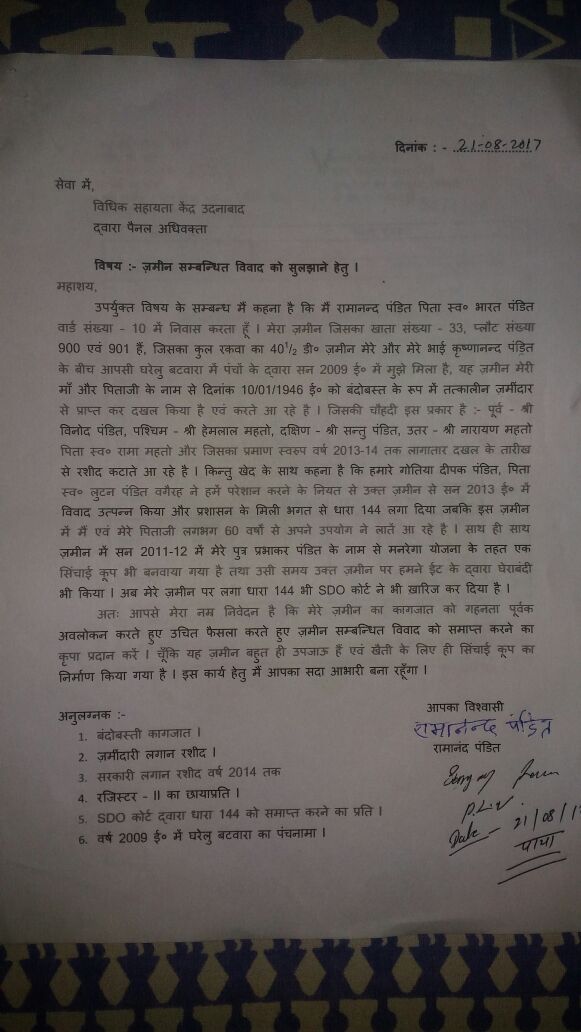 दिनांक : - 21-08-2017
सेवा में,
विधिक सहायता केंद्र उदनाबाद
द्वारा पैनल अधिवक्ता
विषय :- ज़मीन सम्बन्धित विवाद को सुलझाने हेतु ।
महाशय,
उपर्युक्त विषय के सम्बन्ध में कहना है कि मैं रामानन्द पंडित पिता स्व० भारत पंडित
वार्ड संख्या - 10 में निवास करता हूँ । मेरा ज़मीन जिसका खाता संख्या - 33, प्लौट संख्या
900 एवं 901 हैं, जिसका कुल रकवा का 40¹/₂ डी० ज़मीन मेरे और मेरे भाई कृष्णानन्द पंडित
के बीच आपसी घरेलु बटवारा में पंचों के द्वारा सन 2009 ई० में मुझे मिला है, यह ज़मीन मेरी
माँ और पिताजी के नाम से दिनांक 10/01/1946 ई० को बंदोबस्त के रूप में तत्कालीन ज़मींदार
से प्राप्त कर दखल किया है एवं करते आ रहे है । जिसकी चौहदी इस प्रकार है :- पूर्व - श्री
विनोद पंडित, पश्चिम - श्री हेमलाल महतो, दक्षिण - श्री सन्तु पंडित, उतर - श्री नारायण महतो
पिता स्व० रामा महतो और जिसका प्रमाण स्वरुप वर्ष 2013-14 तक लागातार दखल के तारीख
से रशीद कटाते आ रहे है । किन्तु खेद के साथ कहना है कि हमारे गोतिया दीपक पंडित, पिता
स्व० लुटन पंडित वगैरह ने हमें परेशान करने के नियत से उक्त ज़मीन से सन 2013 ई० में
विवाद उत्पन्न किया और प्रशासन के मिली भगत से धारा 144 लगा दिया जबकि इस ज़मीन
में मैं एवं मेरे पिताजी लगभग 60 वर्षो से अपने उपयोग ने लातें आ रहे है । साथ ही साथ
ज़मीन में सन 2011-12 में मेरे पुत्र प्रभाकर पंडित के नाम से मनरेगा योजना के तहत एक
सिंचाई कूप भी बनवाया गया है तथा उसी समय उक्त ज़मीन पर हमने ईट के द्वारा घेराबंदी
भी किया । अब मेरे ज़मीन पर लगा धारा 144 भी SDO कोर्ट ने भी ख़ारिज कर दिया है ।
अतः आपसे मेरा नम्र निवेदन है कि मेरे ज़मीन का कागजात को गहनता पूर्वक
अवलोकन करते हुए उचित फैसला करते हुए ज़मीन सम्बन्धित विवाद को समाप्त करने का
कृपा प्रदान करें । चूँकि यह ज़मीन बहुत ही उपजाऊ हैं एवं खैती के लिए ही सिंचाई कूप का
निर्माण किया गया है । इस कार्य हेतु मैं आपका सदा आभारी बना रहूँगा ।
आपका विश्वासी
रामानन्द पंडित
रामानंद पंडित
अनुलग्नक :-
1. बंदोबस्ती कागजात ।
2. ज़मींदारी लगान रशीद ।
3. सरकारी लगान रशीद वर्ष 2014 तक
4. रजिस्टर - II का छायाप्रति ।
5. SDO कोर्ट द्वारा धारा 144 को समाप्त करने का प्रति ।
6. वर्ष 2009 ई० में घरेलु बटवारा का पंचनामा ।
P.L.V.
Date - 21/08/1
पाया